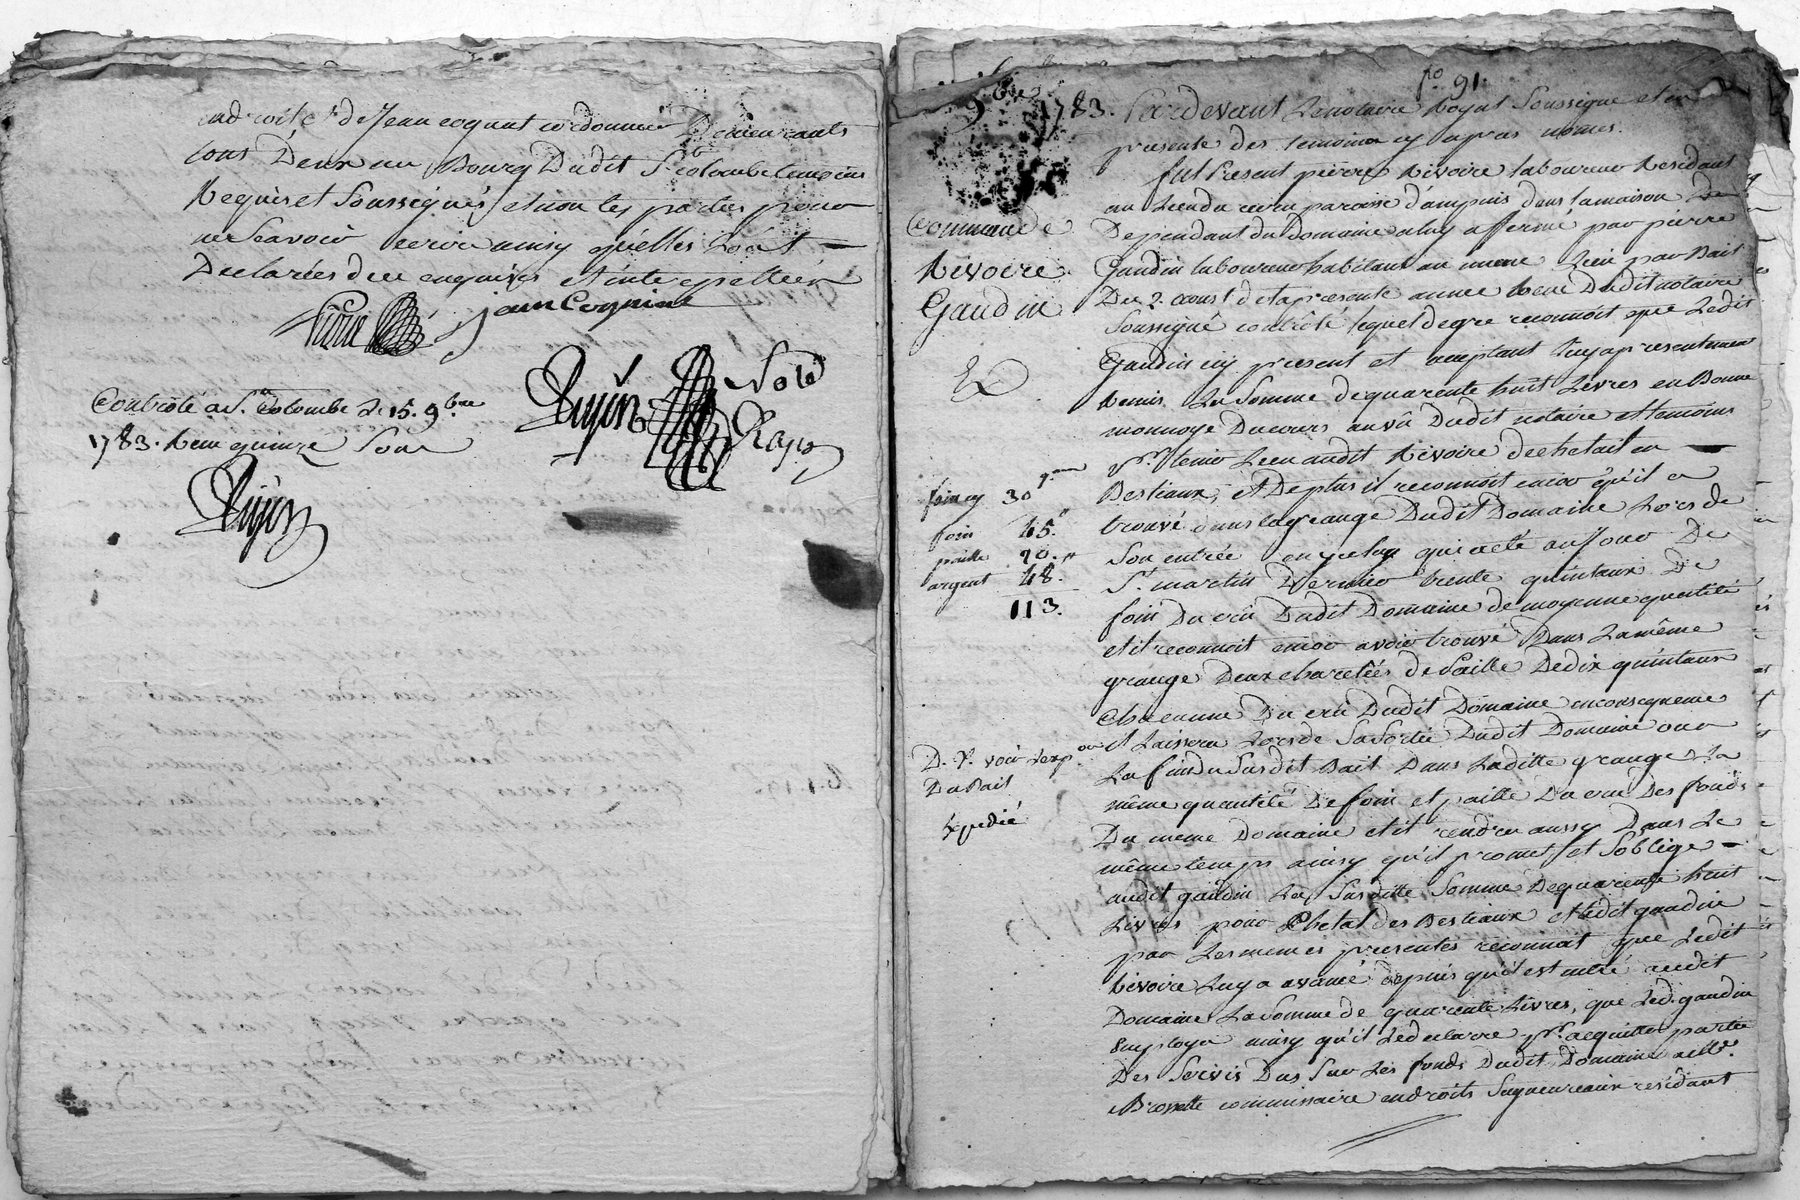 endroits & de Jean cognat cordonnier Demeurants
tous Deux au Bourg Dudit Ste colombe temoins
Requis et Soussignés, et non les parties pour
ne Scavoir ecrire ainsy qu'elles L'ont
Declarées de ce enquises et interpellées
jean Cognat
Dujon
Controlé a Ste Colombe Le 15. 9bre
1783. Reçu quinze Sous
Dujon
fo 91.
9bre 1783. Pardevant Le notaire Royal Soussigné et en
presence des temoins cy apres només.
fut Present pierre Rivoire laboureur Residant
au Lieu du paroisse d'ampuis dans la maison De
Dependant du Domaine a luy affermé par pierre
Gaudin laboureur habitant au meme Lieu par Bail
Du 2 aoust de la presente année Recu Dudit notaire
Soussigné controlé lequel de gre reconnoit que Ledit
Gaudin icy present et acceptant luy a presentement
Remis La Somme de quarente huit Livres en Bonne
monnoye Ducours au vû Dudit notaire et temoins
pr. tenir Lieu audit Rivoire de chetail en
Bestiaux, et De plus il reconnoit encor qu'il a
trouvé dans la grange Dudit Domaine Lors de
Son entrée en iceluy qui a eté au Jour De
St. martin Dernier trente quintaux De
foin Du crû Dudit Domaine de moyenne quantité
et il reconnoit encor avoir trouvé Dans La même
grange Deux charetées de Paille De dix quintaux
Chacunne Du crû Dudit Domaine en consequence
il Laissera Lors de Sa Sortie Dudit Domaine ou a
La fin du Susdit Bail Dans Laditte grange La
même quantité De foin et paille Du crû Des fonds
Du meme Domaine et il rendra aussy Dans Le
même temps ainsy qu'il promet et S'oblige
audit gaudin La Susditte Somme De quarente huit
Livres pour Chetal des Bestiaux et Ledit gaudin
par Les memes presentes reconnoit que Ledit
Rivoire Luy a avancé depuis qu'il est entré audit
Domaine La Somme de quarente Livres, que Led. gaudin
Employa ainsy qu'il Le declarre pr. acquitter partie
Des Servis Dus Sur Les fonds Dudit Domaine a
Brossette commissaire en droits Seigneuriaux residant
Commande
Rivoire
Gaudin
foin cy 30
foin 45.
paille 20.
argent 48.
113.
Du Bail
Expedié